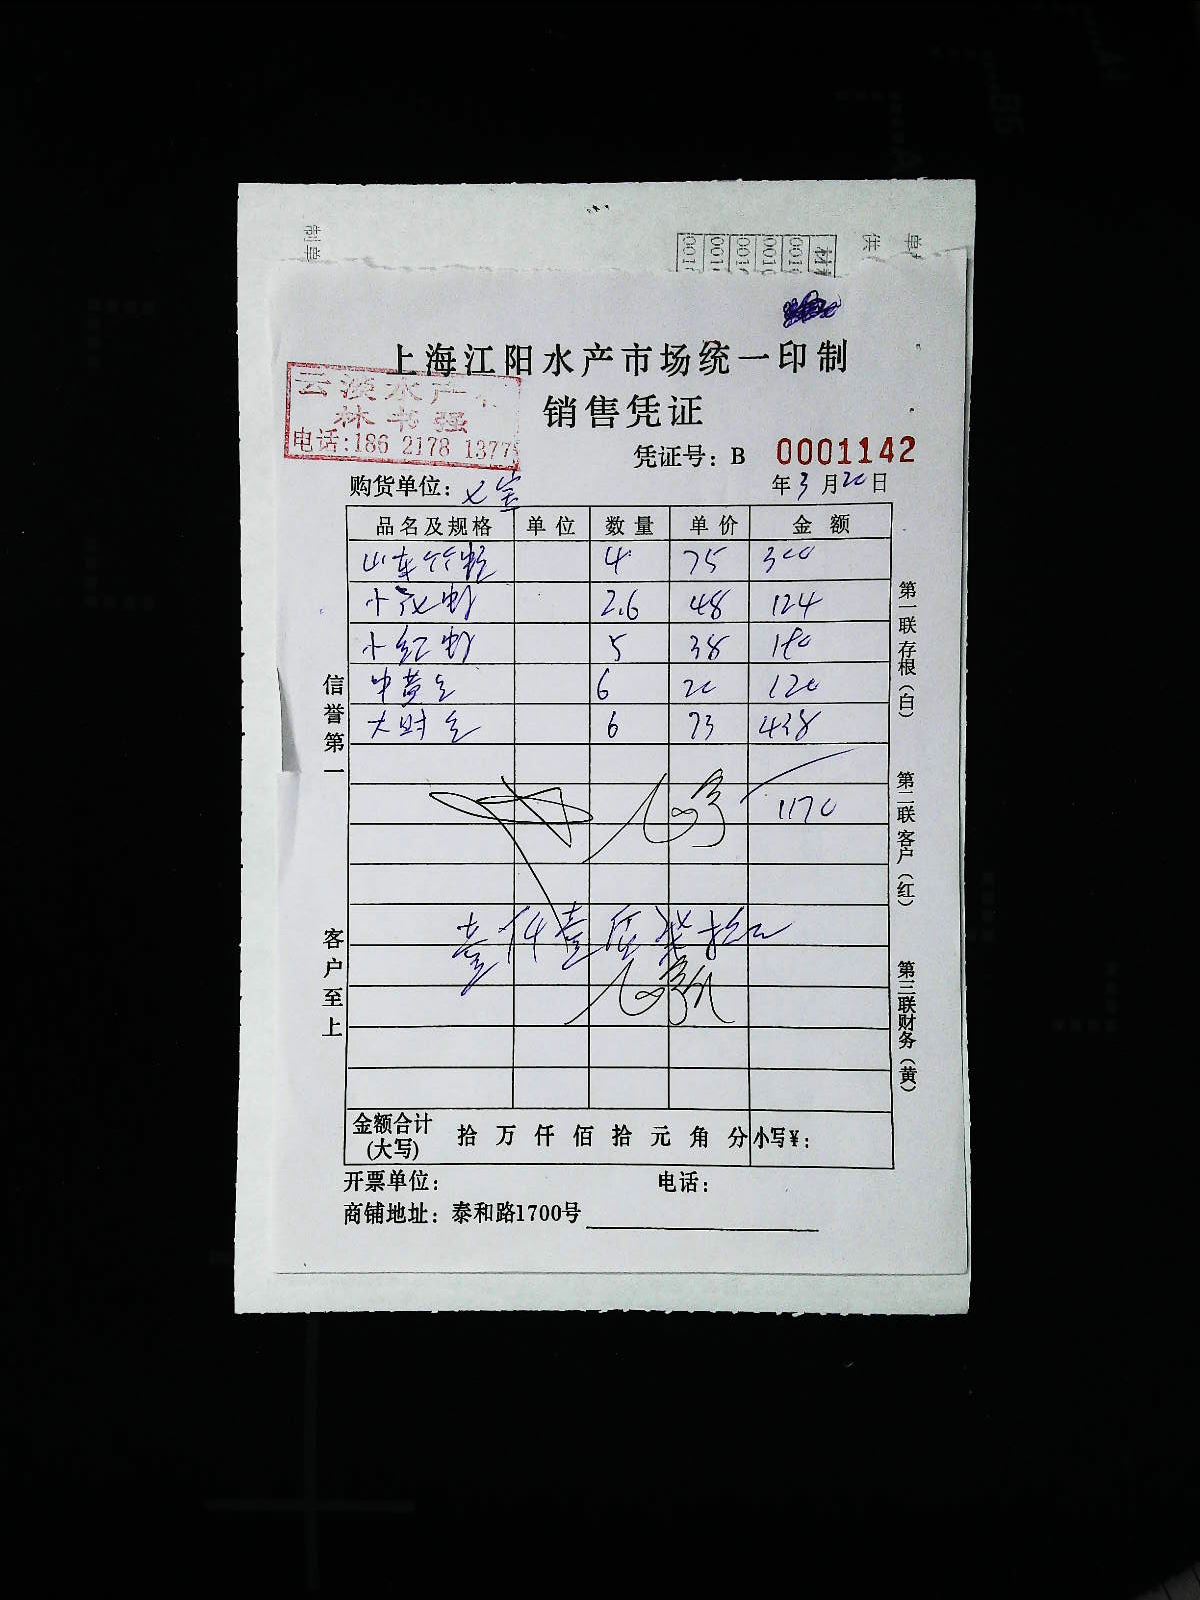 制单
供
单
材
上海江阳水产市场统一印制
云淡水产
林书强
电话:186 2178 1377
销售凭证
凭证号: B 0001142
购货单位: 七宝
年 3 月 20 日
品名及规格 单位 数量 单价 金额
山东竹蛏 4 75 300
小 虾 2.6 48 124
小红虾 5 38 190
中黄 6 20 120
大 6 73 438
1170
壹仟壹佰柒拾
信誉第一
客户至上
第一联存根(白)
第二联客户(红)
第三联财务(黄)
金额合计(大写) 拾 万 仟 佰 拾 元 角 分 小写¥:
开票单位: 电话:
商铺地址: 泰和路1700号